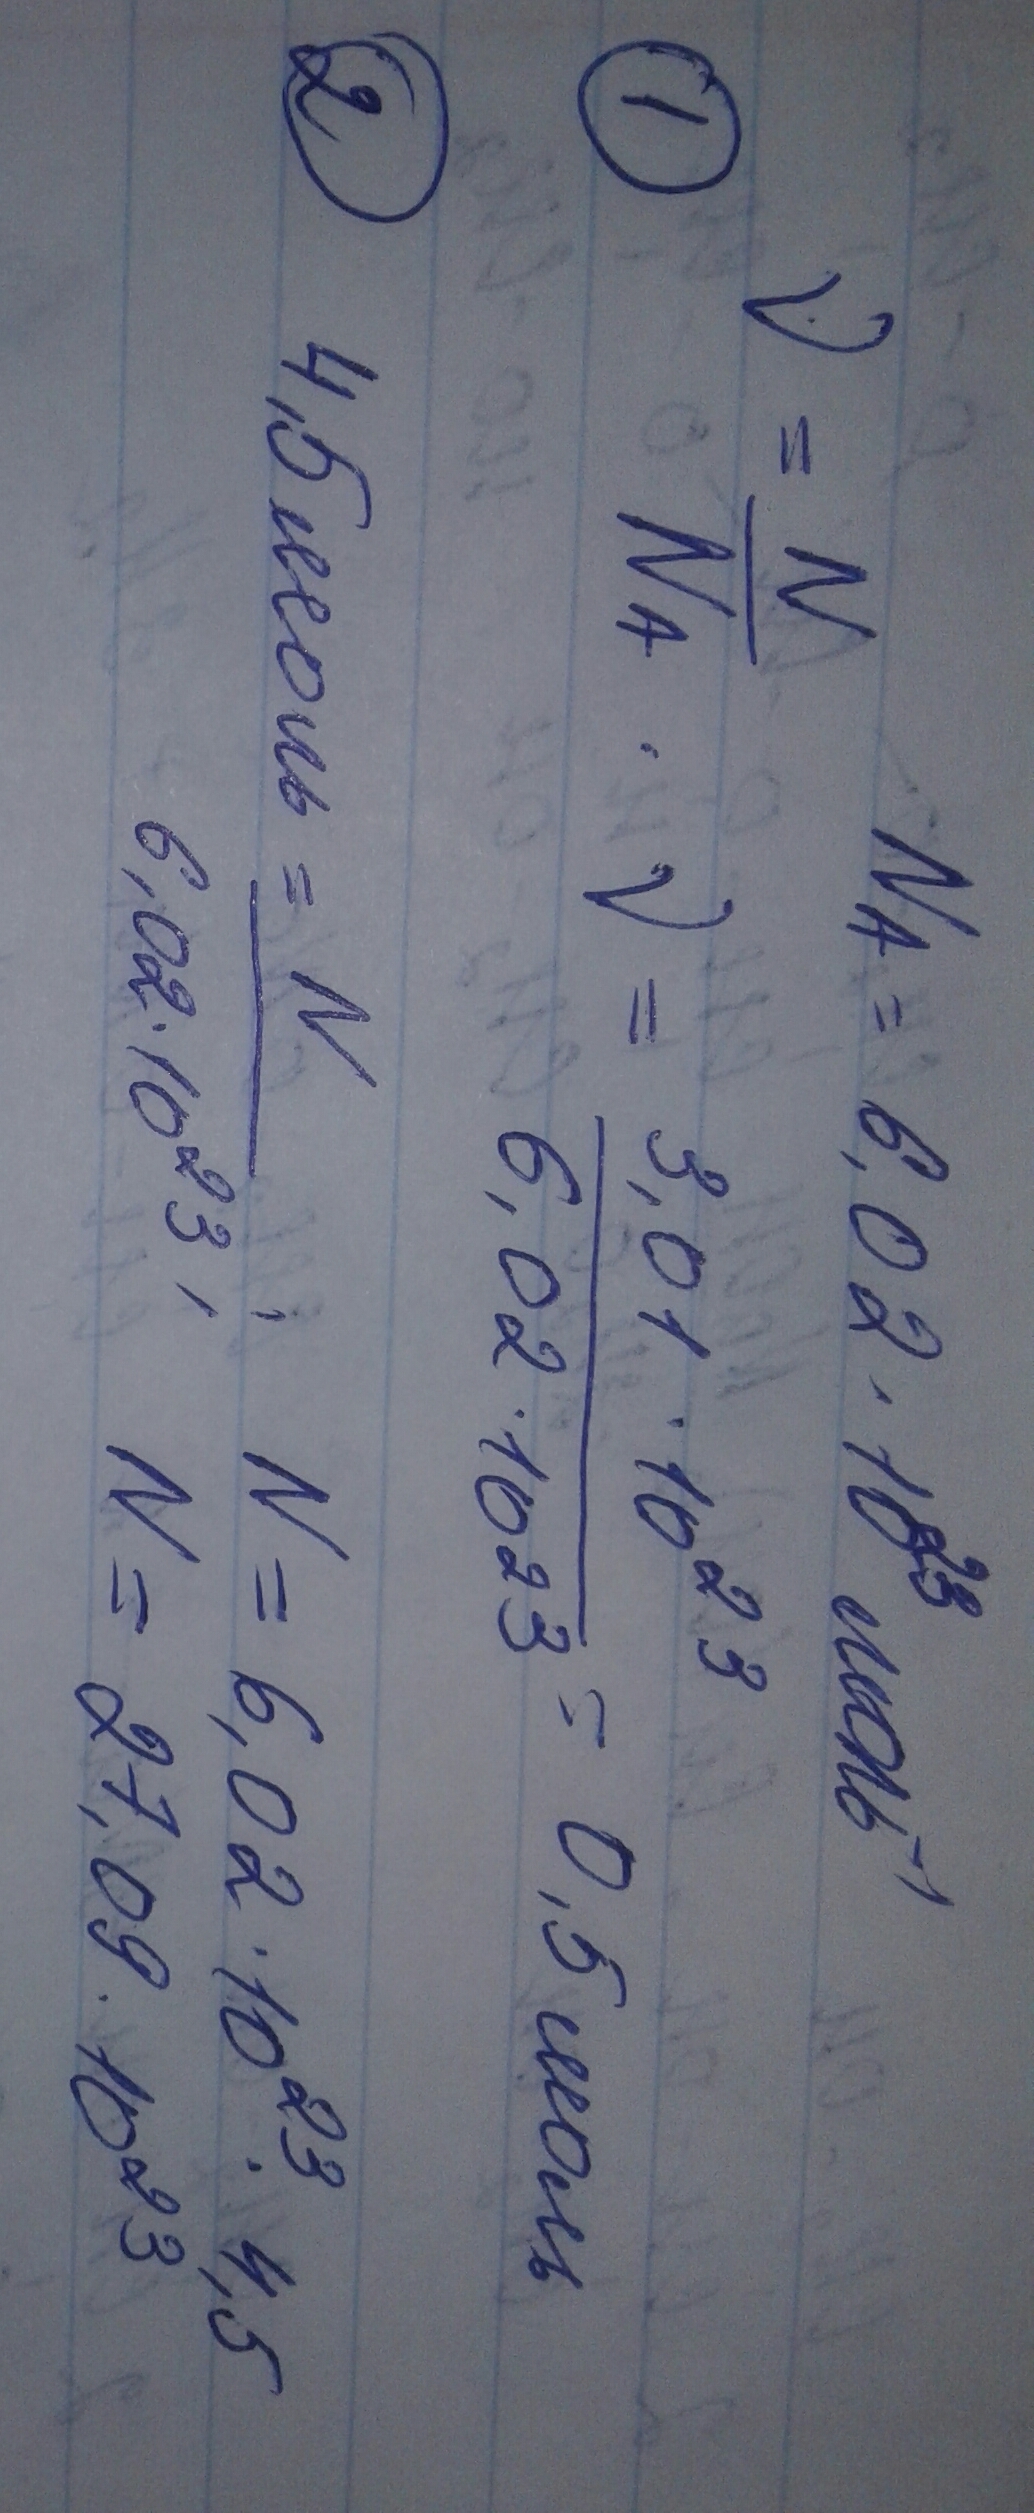 N_A = 6,02 · 10²³ моль⁻¹
① ν = N / N_A . ν = 3,01 · 10²³ / 6,02 · 10²³ = 0,5 моль
② 4,5 моль = N / 6,02 · 10²³ ; N = 6,02 · 10²³ · 4,5
N = 27,09 · 10²³